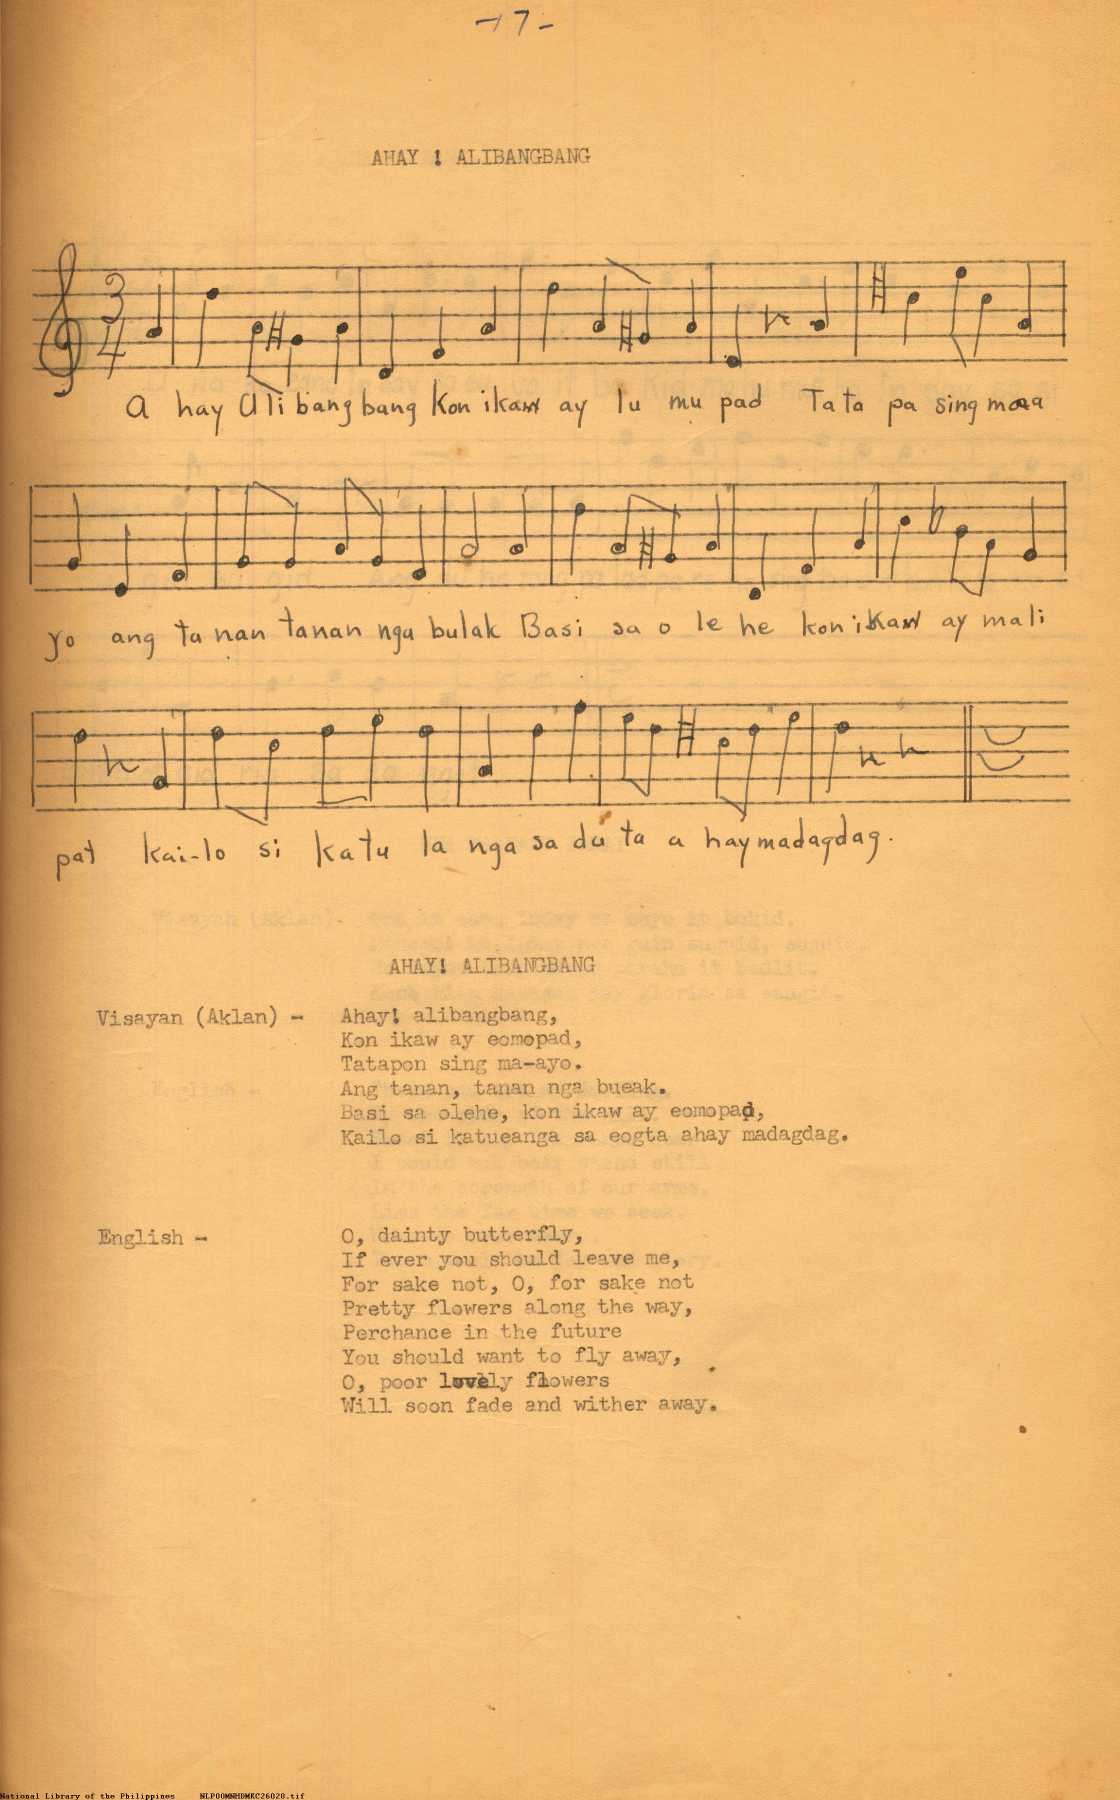 -17-
AHAY ! ALIBANGBANG
3
4
A hay Ali bang bang Kon ikaw ay lu mu pad Ta ta pa sing maa
yo ang ta nan tanan nga bulak Basi sa o le he kon ikaw ay mali
pat kai-lo si katu la nga sa du ta a hay madagdag.
AHAY! ALIBANGBANG
Visayan (Aklan) - Ahay! alibangbang,
Kon ikaw ay eomopad,
Tatapon sing ma-ayo.
Ang tanan, tanan nga bueak.
Basi sa olehe, kon ikaw ay eomopad,
Kailo si katueanga sa eogta ahay madagdag.
English - O, dainty butterfly,
If ever you should leave me,
For sake not, O, for sake not
Pretty flowers along the way,
Perchance in the future
You should want to fly away,
O, poor lovely flowers
Will soon fade and wither away.
National Library of the Philippines NLP00MNHDMKC26020.tif